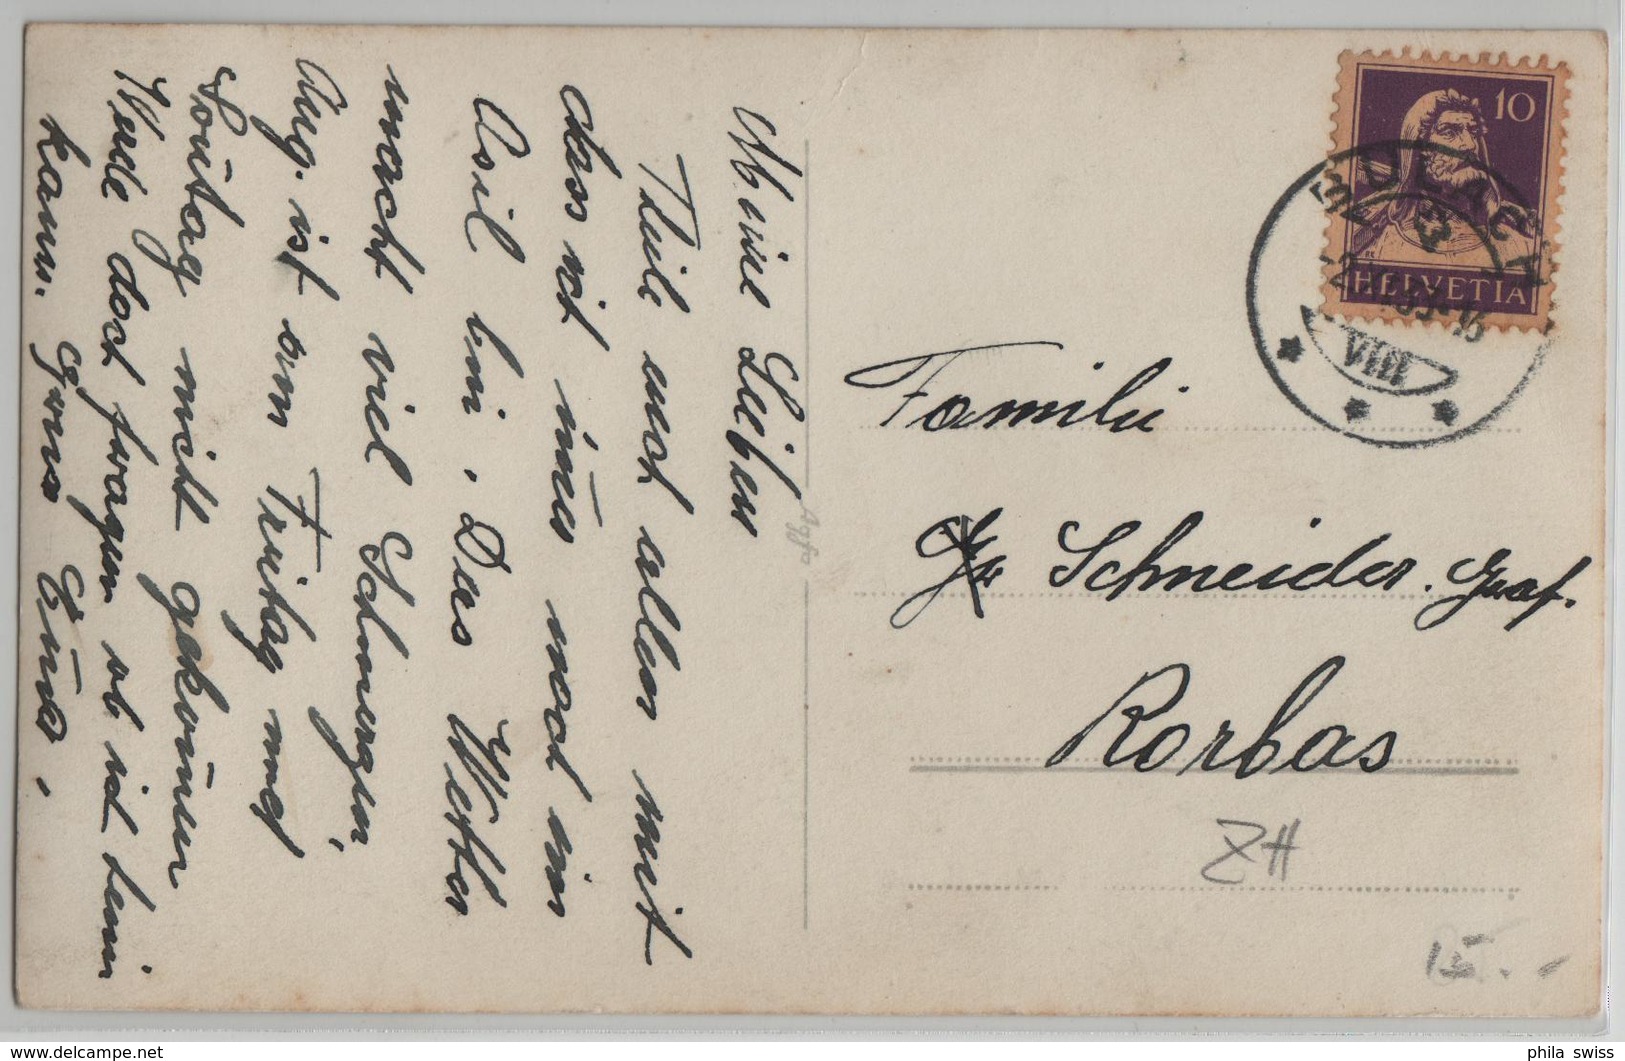 Meine Lieben
Theile euch allen mit
dass ich im̄er noch im
Asil bin. Das Wetter
macht viel Schmerzen.
Aug. ist am Freitag und
Son̄tag nicht gekom̄en
Werde dort fragen ob ich heim
kann. Gruss Em̄a.
10
HELVETIA
BÜLACH
VIII
Familie
Schneider. Graf.
Rorbas
ZH
15.-
Agfa
phila swiss